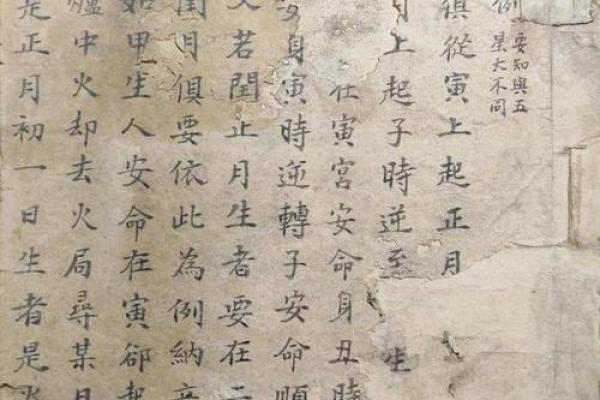 例
要知與五
星大不同
俱從寅上起正月
月上起子時逆至生
在寅宮安命身丑時
安身寅時逆轉子安命順
又若閏正月生者要在二
閏月俱要依此為例納音
如甲生人安命在寅郤起
爐中火却去火局尋某日
是正月初一日生者是火